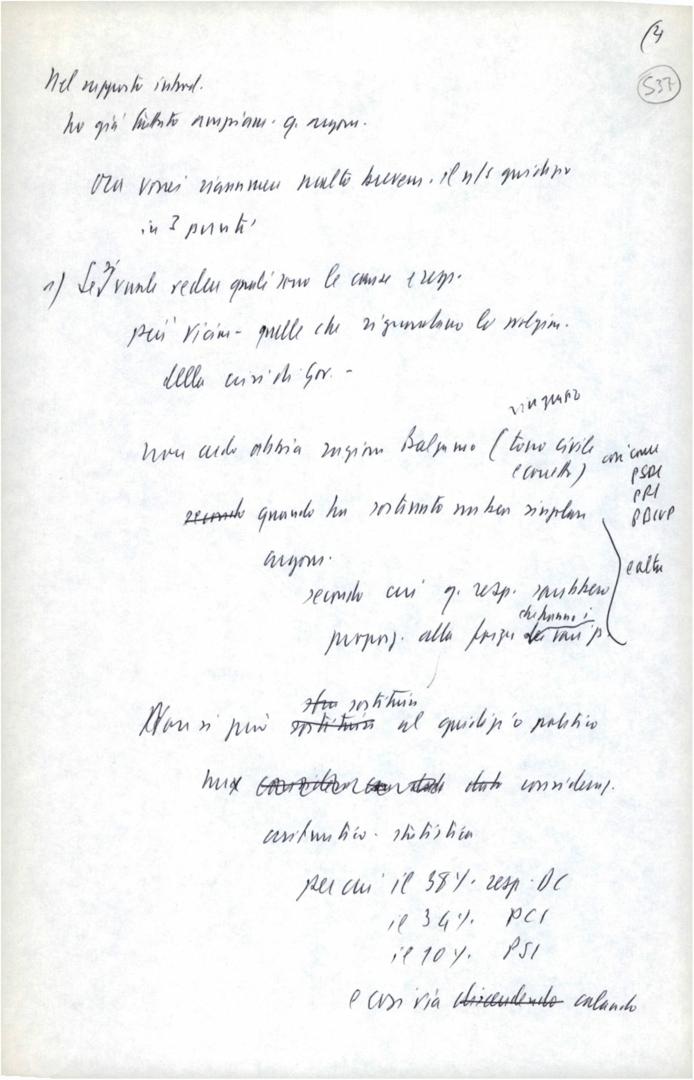 (4
537
Nel rapporto introd.
ho già trattato ampiam. q. argom.
Ora vorrei riassumere molto brevem. il n/s giudizio
in 3 punti
1) Se si vuole vedere quali sono le cause e resp.
più vicine - quelle che riguardano lo svolgim.
della crisi di Gov. -
non credo abbia ragione Balzamo (tono civile
e corretto)
così come
PSDI
PRI
PDUP
e altri
secondo quando ha sostenuto un ben singolare
argom.
secondo cui q. resp. sarebbero
propoz. alla forza dei vari p.
che hanno i
Non si può sostituire sostituire al giudizio politico
una consideraz.
aritmetico - statistica
per cui il 38% resp. DC
il 34% PCI
il 10% PSI
e così via discendendo calando